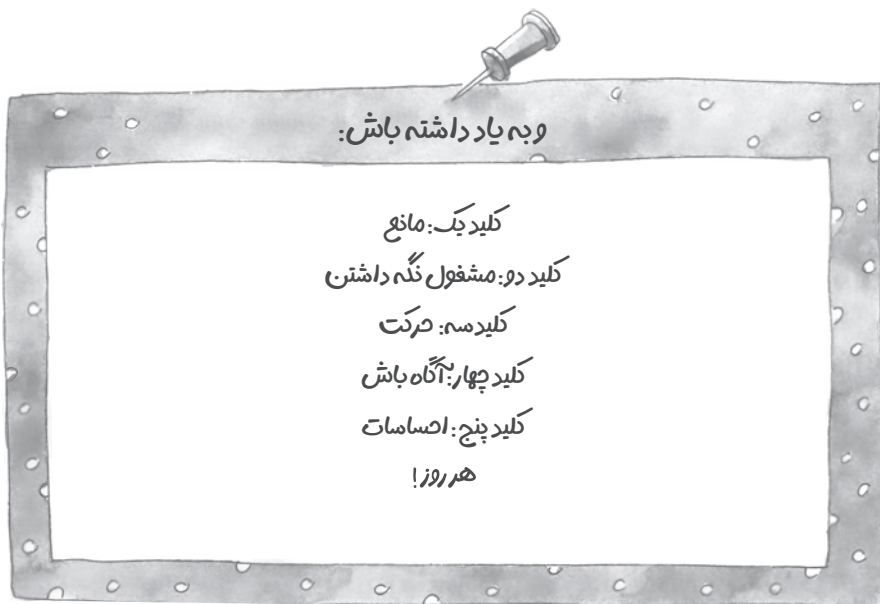 و به یاد داشته باش:
کلید یک: مانع
کلید دو: مشغول نگه داشتن
کلید سه: حرکت
کلید چهار: آگاه باش
کلید پنج: احساسات
هر روز!